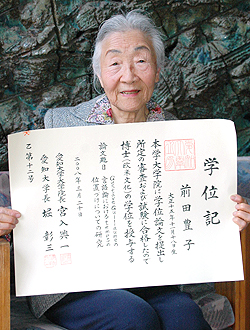 学位記
前田豊子
本学大学院に学位論文を提出し
所定の審査および試験に合格したので
博士(欧米文化)の学位を授与する
論文題目
言語論における
位置づけについての研究
二〇〇八年三月二十日
愛知大学大学院長 宮入興一
愛知大学長 堀彰三
乙第十二号